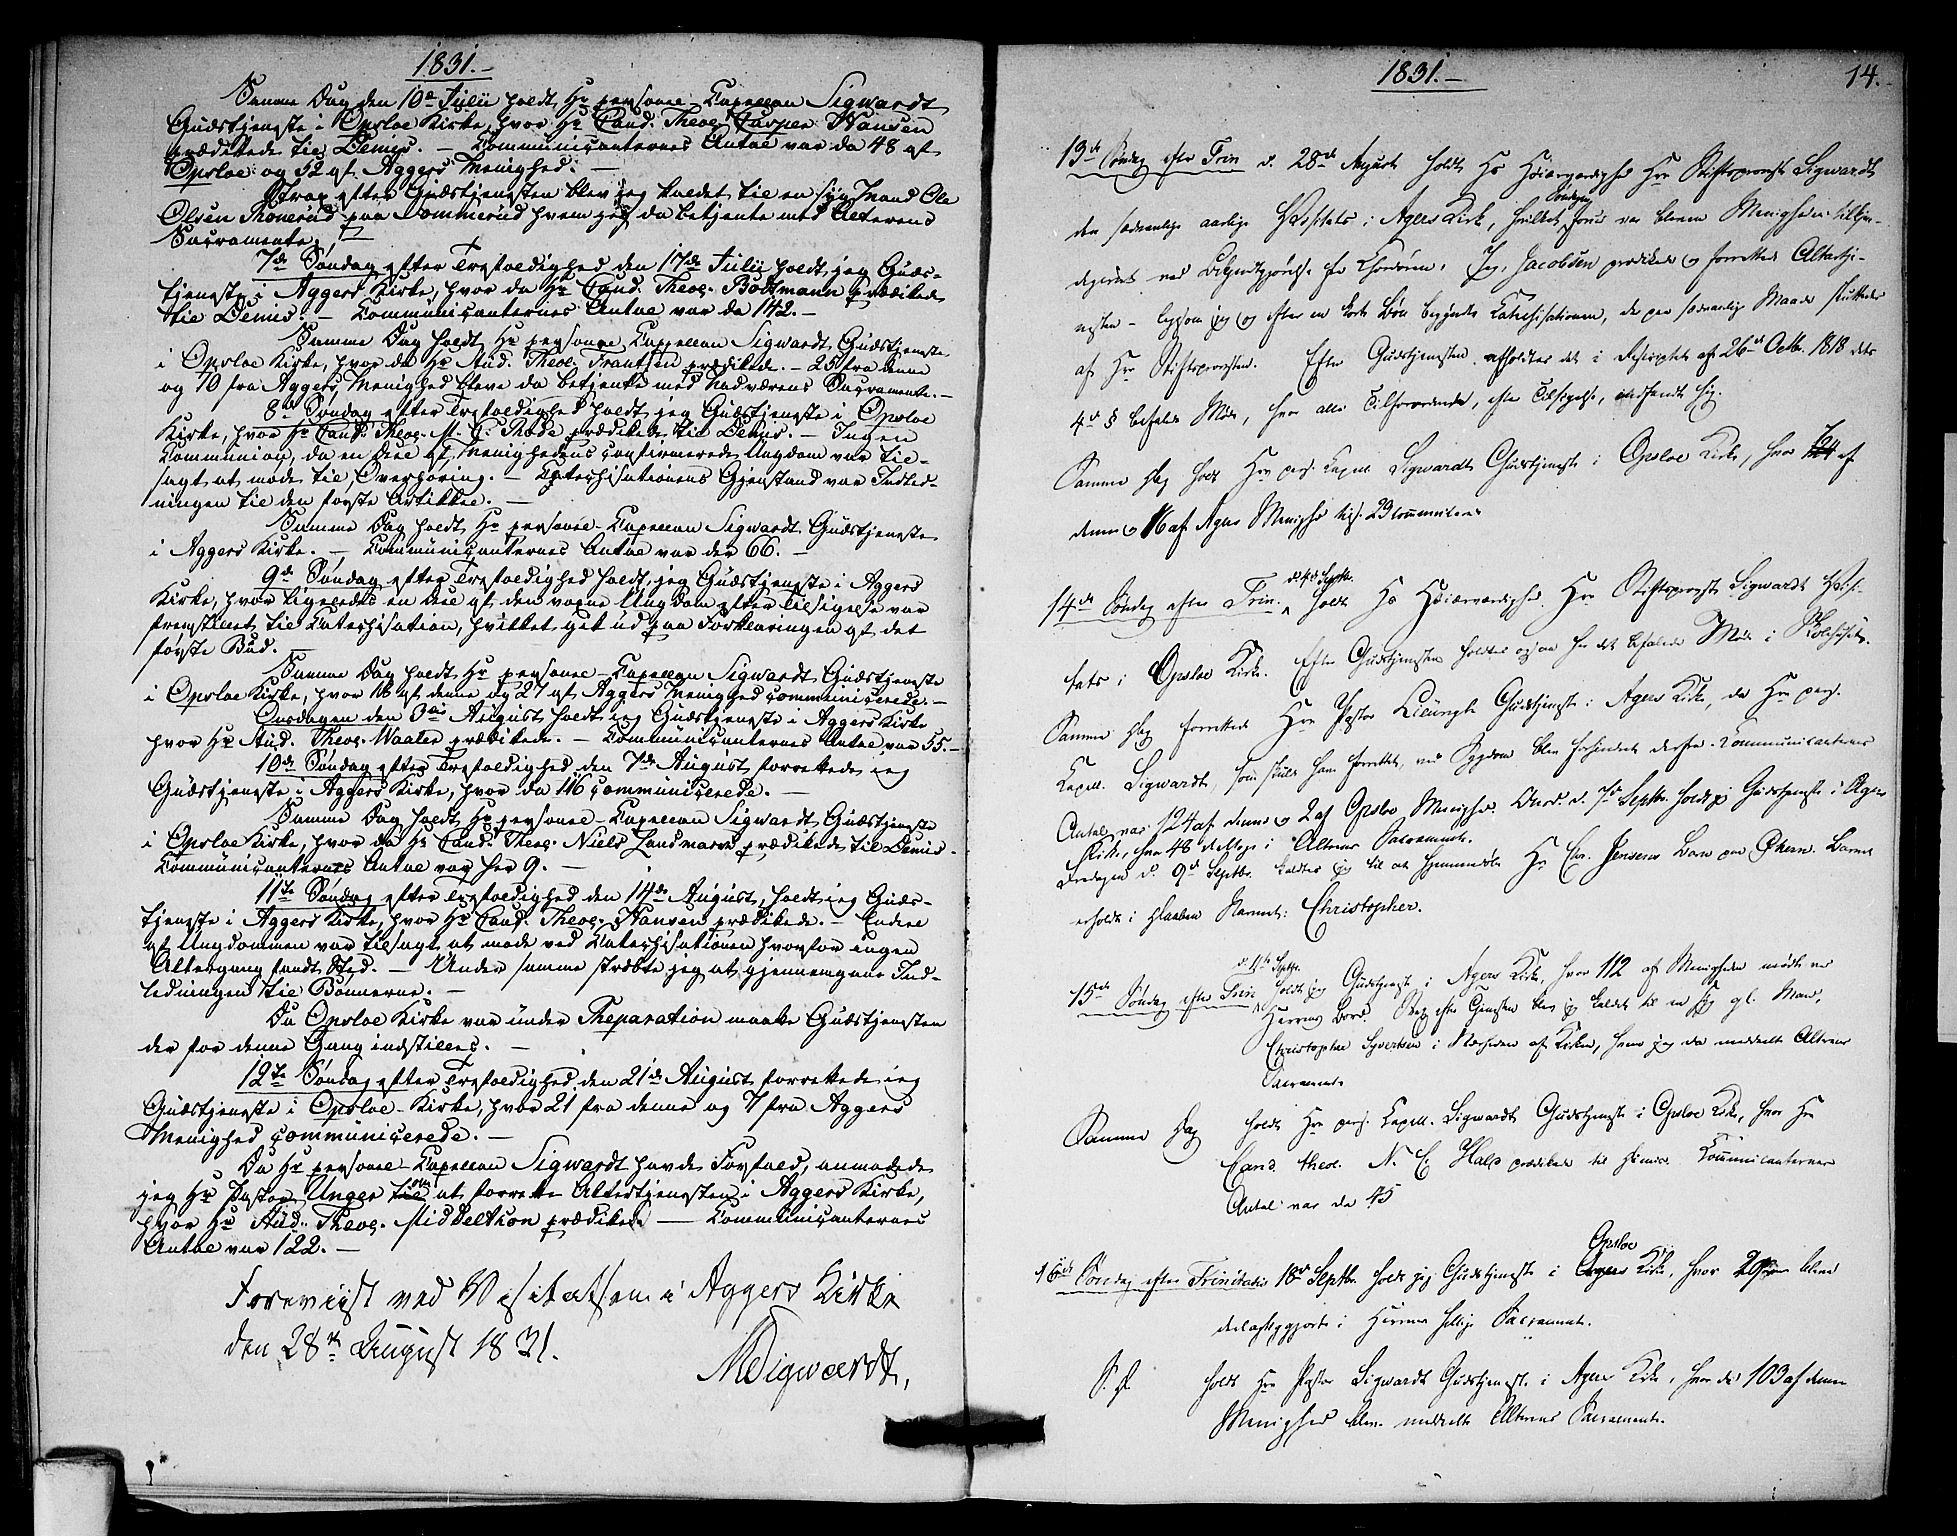 1831.-
Samme Dag den 10de Julii holdt Hr personel Capellan Sigwardt
Gudstjeneste i Opsloe Kirke, hvor Hr Cand. Theol. Casper Hansen
prædikede til Demis. – Communicanternes Antal var da 48 af
Opsloe og 32 af Aggers Menighed. –
Strax efter Gudstjenesten blev jeg kaldet til en syg Mand Ole
Olsen paa Sommerud hvem jeg da betjente med Alterens
Sacramente. –
7de Søndag efter Trefoldighed den 17de Julii holdt jeg Guds-
tjeneste i Aggers Kirke, hvor da Hr Cand. Theol. Bodtmann prædikede
til Demis. – Communicanternes Antal var da 142. –
Samme Dag holdt Hr personel Capellan Sigwardt Gudstjeneste
i Opsloe Kirke, hvor da Hr Stud. Theol. Frantsen prædikede. – 25 fra denne
og 70 fra Aggers Menighed bleve da betjente med Nadverens Sacramente. –
8de Søndag efter Trefoldighed holdt jeg Gudstjeneste i Opsloe
Kirke, hvor Hr Cand. Theol. M. C. Thode prædikede til Demis. – Ingen
Communion, da en Deel af Menighedens confirmerede Ungdom var til-
sagt at møde til Overhøring. – Catechisationens Gjenstand var Indled-
ningen til den første Artikkel. –
Samme Dag holdt Hr personel-Capellan Sigwardt Gudstjeneste
i Aggers Kirke. – Communicanternes Antal var der 66. –
9de Søndag efter Trefoldighed holdt jeg Gudstjeneste i Aggers
Kirke, hvor ligeledes en Deel af den voxne Ungdom efter Tilsigelse var
fremstillet til Catechisation, hvilket gik ud paa Forklaringen af det
første Bud. –
Samme Dag holdt Hr personel-Capellan Sigwardt Gudstjeneste
i Opsloe Kirke, hvor 16 af denne og 27 af Aggers Menighed communicerede. –
Onsdagen den 3die August holdt jeg Gudstjeneste i Aggers Kirke
hvor Hr Stud. Theol. Waaler prædikede. – Communicanternes Antal var 55. –
10de Søndag efter Trefoldighed den 7de August forrettede jeg
Gudstjeneste i Aggers Kirke, hvor da 116 communicerede. –
Samme Dag holdt Hr personel-Capellan Sigwardt Gudstjeneste
i Opsloe Kirke, hvor da Hr Cand. Theol. Niels Landmark prædikede til Demis-
Communicanternes Antal var her 9. –
11te Søndag efter Trefoldighed den 14de August, holdt jeg Guds-
tjeneste i Aggers Kirke, hvor Hr Cand. Theol. Hansen prædikede. – Endeel
af Ungdommen var tilsagt at møde ved Catechisationen hvorfor ingen
Altergang fandt Sted. – Under samme stræbte jeg at gjennemgaae Ind-
ledningen til Bønnerne. –
Da Opsloe Kirke var under Reparation maatte Gudstjenesten
der for denne Gang indstilles. –
12te Søndag efter Trefoldighed den 21de August forrettede jeg
Gudstjeneste i Opsloe-Kirke, hvor 21 fra denne og 7 fra Aggers
Menighed communicerede. –
Da Hr personel-Capellan Sigwardt havde Forfald, anmodede
jeg Hr Pastor Unger om at forrette Altertjenesten i Aggers Kirke,
hvor Hr Stud. Theol. Middelthon prædikede – Communicanternes
Antal var 122. –
Foreviist ved Visitatsen i Aggers Kirke
den 28de August 1831.
MSigwardt,
1831.-
14.
13de Søndag efter Trin d. 28de August holdt Hs Høiærværdighed Hr Stiftsprovst Sigwardt
den sædvanlige aarlige Visitats i Agers Kirke, hvilket Søndagen forud var bleven Menigheden tilkjen-
degivet ved Bekjendtgjørelse fra Chordøren. Jeg, Jacobsen prædikede og forrettede Altertje-
nesten – ligesom jeg og efter en kort Bøn begyndte Katechisationen, der paa sædvanlig Maade sluttedes
af Hr Stiftsprovsten. Efter Gudstjenesten afholdtes det i Rescriptet af 26de Octb. 1818 dets
4de § befalede Møde, hvor alle Tilforordnede, efter Tilsigelse, indfandt sig.
Samme Dag holdt Hr pers. Kapell. Sigwardt Gudstjeneste i Opsloe Kirke, hvor 7 af
denne og 16 af Agers Menighed tils. 23 kommunicerede
14de Søndag efter Trin. d. 4de Septbr. holdt Hs Høiærværdighed Hr Stiftsprovst Sigwardt Visi-
tats i Opsloe Kirke. Efter Gudstjenesten holdtes ogsaa her det befalede Møde i Skolehuset.
Samme Dag forrettede Hr Pastor Lieungh Gudstjeneste i Agers Kirke, da Hr pers.
Kapell. Sigwardt, som skulde have forrettet, ved Sygdom blev forhindret derfra. Kommunicanternes
Antal var 124 af denne og 2 af Opsloe Menighed. Onsd. d. 7de Septbr. holdt jeg Gudstjeneste i Agers
Kirke, hvor 48 deeltoge i Alterens Sacramente.
Fredagen d. 9de Septbr. kaldtes jeg til at hjemmedøbe Hr Chr. Jensens Barn paa Barnet
erholdt i Daaben Navnet: Christopher.
15de Søndag efter Trin d. 11te Septbr. holdt jeg Gudstjeneste i Agers Kirke, hvor 112 af Menigheden mødte ved
Herrens Bord. Strax efter Tjenesten blev jeg kaldet til en syg gl. Mand,
Christopher Syvertsen i Nærheden af Kirken, hvem jeg da meddeelte Alterens
Sacramente
Samme Dag holdt Hr pers. Kapell. Sigwardt Gudstjeneste i Opsloe Kirke, hvor Hr
Cand. theol. N. C. Hals prædikede til Dimis. Kommunicanternes
Antal var da 45
16de Søndag efter Trinitatis 18de Septbr. holdt jeg Gudstjeneste i Opsloe Kirke, hvor 29 bleve
deelagtiggjorte i Herrens hellige Sacramente.
S. D. holdt Hr Pastor Sigwardt Gudstjeneste i Agers Kirke, hvor da 103 af denne
Menighed blev meddeelte Alterens Sacramente.